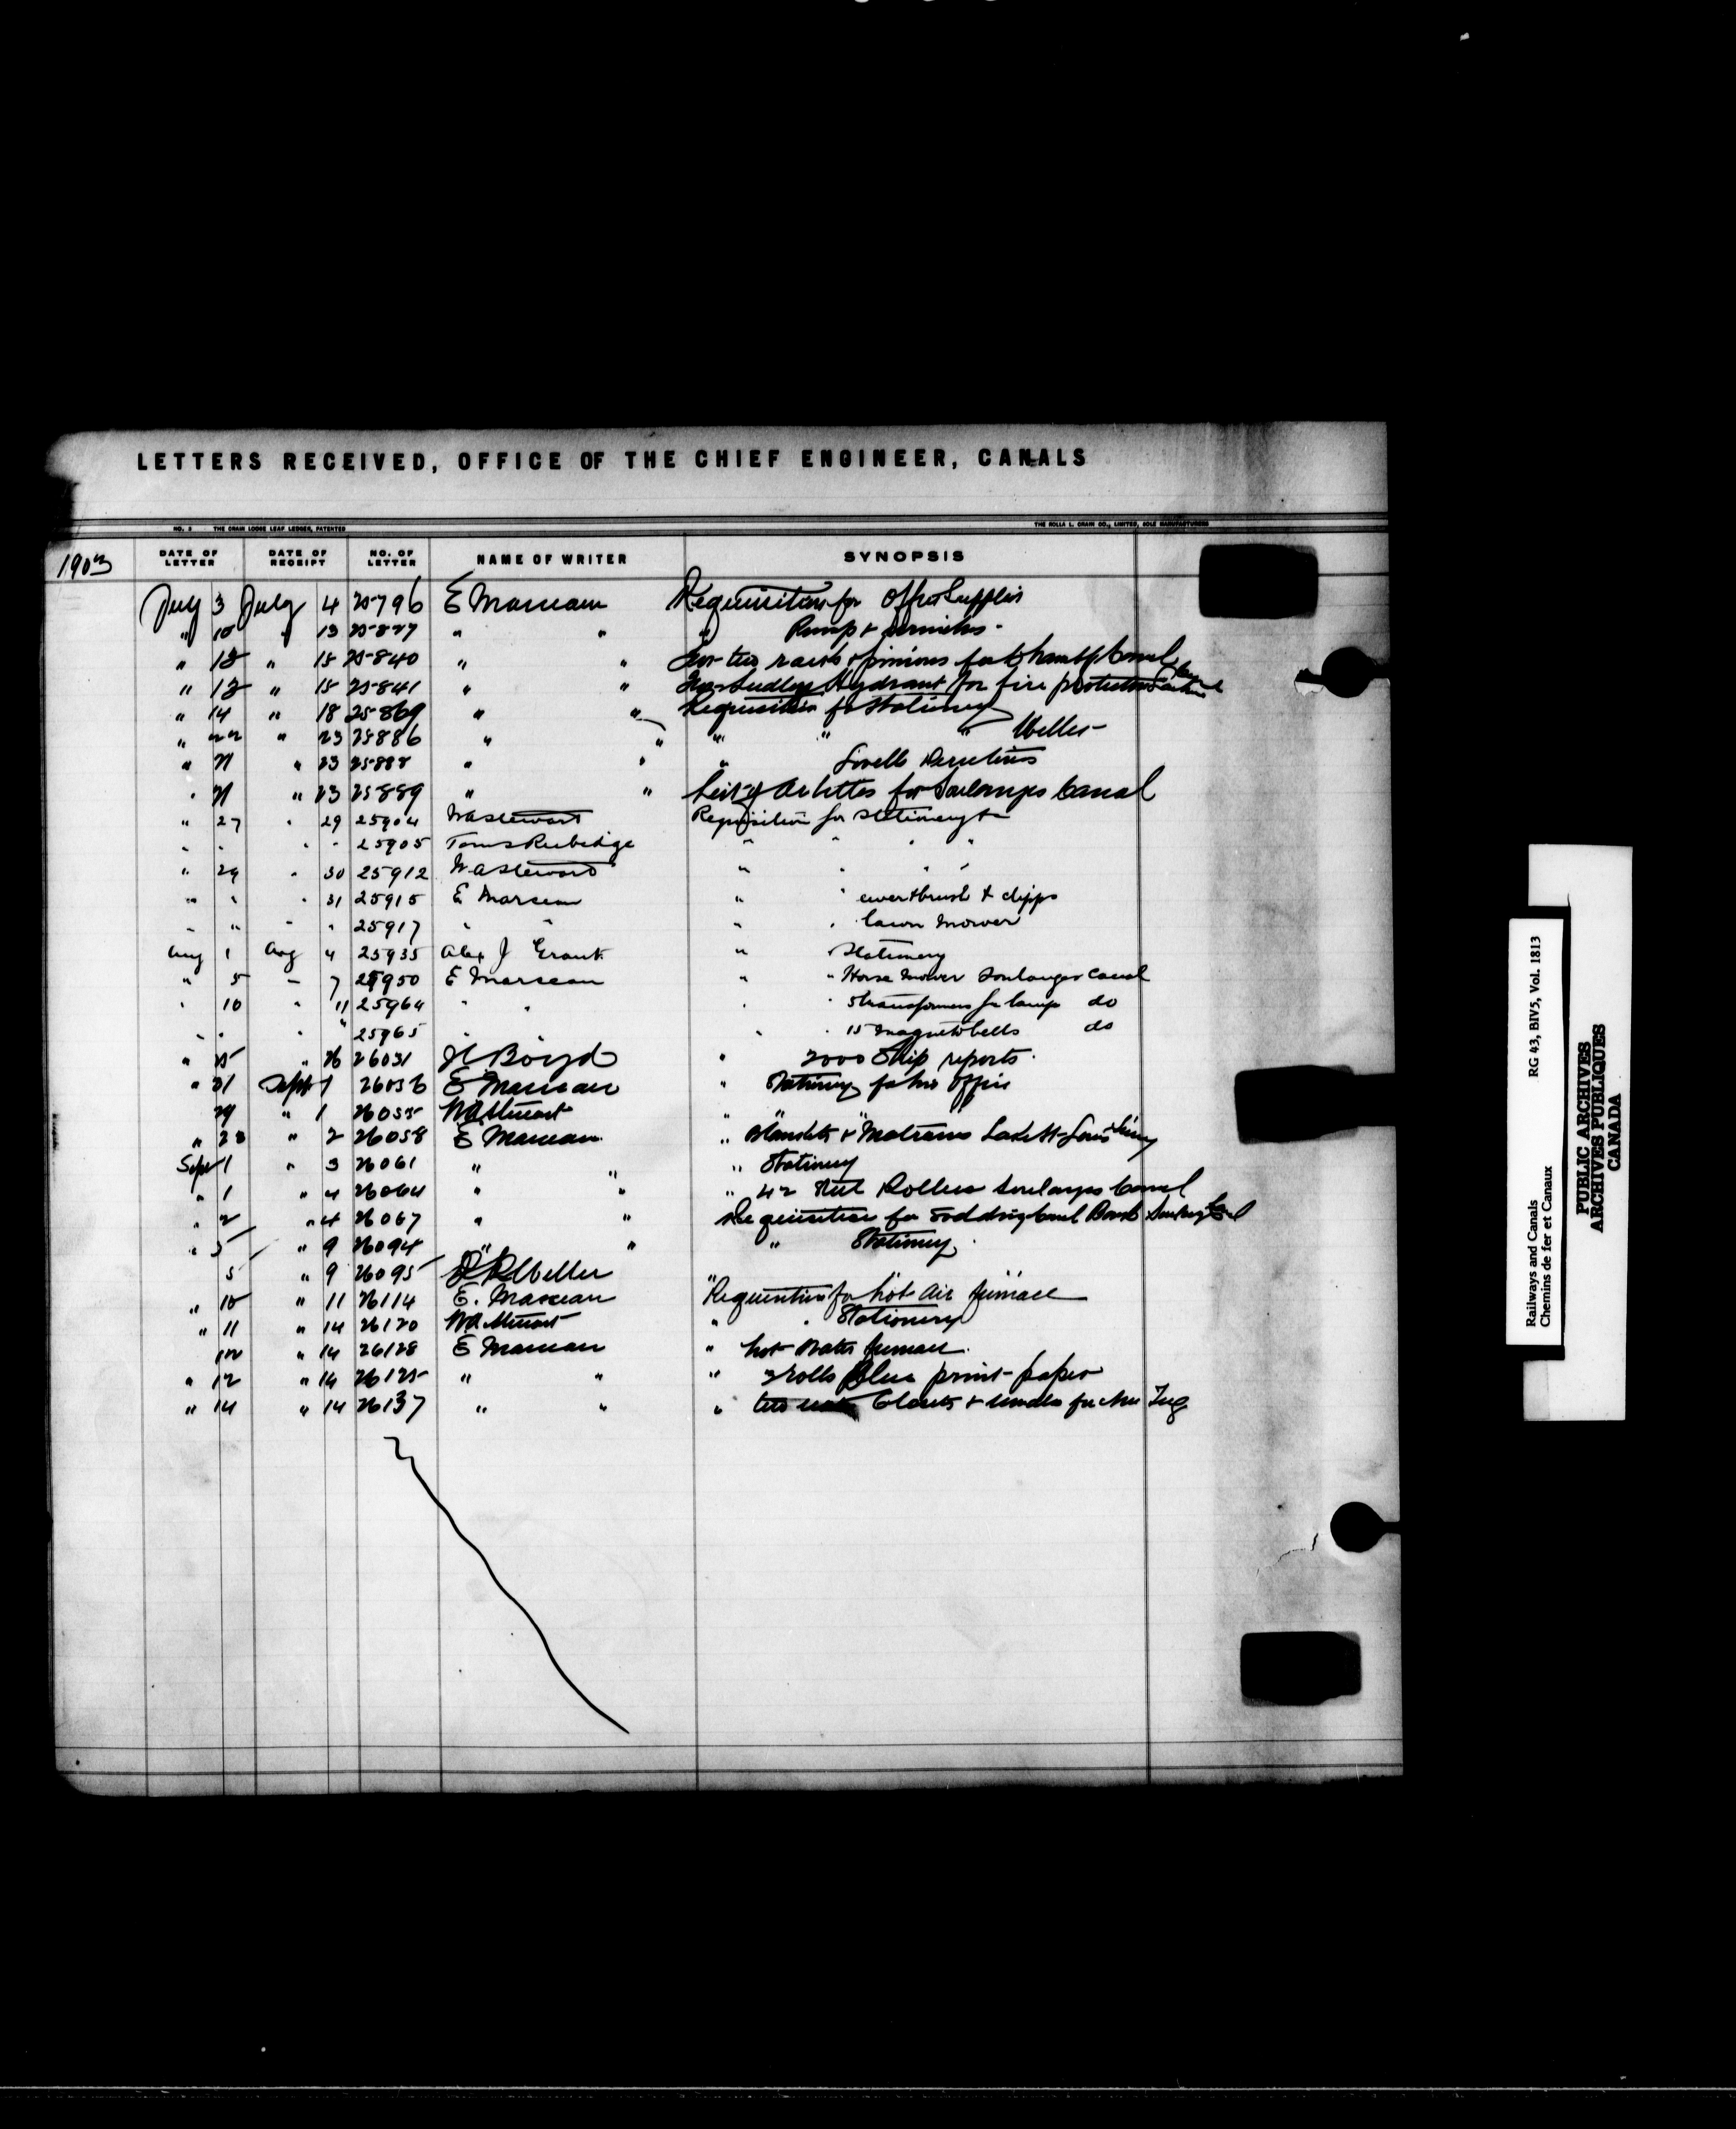 LETTERS RECEIVED, OFFICE OF THE CHIEF ENGINEER, CANALS
NO. 3 THE CRAIN LOOSE LEAF LEDGER, PATENTED THE ROLLA L. CRAIN CO., LIMITED, SOLE MANUFACTURERS
1903 DATE OF LETTER DATE OF RECEIPT NO. OF LETTER NAME OF WRITER SYNOPSIS
July 3 July 4 25796 E Marceau Requisition for Office Supplies
" 10 " 13 " " " Pump +
" 13 " 15 25840 " " for two racks & pinions for Canal
" 13 " 15 25841 " " Hydrant for fire protection
" 14 " 18 25869 " " Requisition for Stationery
" 22 " 23 25886 " " " " " Weller
" 21 " 23 25888 " " "
" 21 " 23 25889 " " List of for Soulanges Canal
" 27 " 29 25904 WA Stewart Requisition for Stationery
" " " " 25905 Toms Rubidge " " " "
" 29 " 30 25912 W A Stewart " " " "
" " " 31 25915 E Marceau " " + clipps
" " " 25917 " " " " lawn mower
Aug 1 Aug 4 25935 Alex J Grant " Stationery
" 5 " 7 25950 E Marceau " " Horse Mower Soulanges Canal
" 10 " 11 25964 " " " " transformers for lamps do
" " " " 25965 " " " 15 magneto bells do
" 25 " 26 26031 Boyd " 2000 Ship reports
" 31 Sept 1 26036 E Marceau " Stationery for his office
29 " 1 26055 WA Stewart " "
" 28 " 2 26058 E Marceau " Blankets & Matrass Lake St Louis
Sept 1 " 3 26061 " " " Stationery
" 1 " 4 26064 " " " 42 Rollers Soulanges Canal
" 2 " 4 26067 " " Requisition for Canal Bank
" 5 " 9 26094 " " " Stationery
5 " 9 26095 Weller " " "
" 10 " 11 26114 E. Marceau Requisition for hot Air furnace
" 11 " 14 26120 WA Stewart " " Stationery
12 " 14 26128 E Marceau " hot water furnace
" 12 " 14 26125 " " " 2 rolls Blue print paper
" 14 " 14 26137 " " " two Closets & for New Tug
Railways and Canals RG 43, BIV5, Vol. 1813
Chemins de fer et Canaux
PUBLIC ARCHIVES
ARCHIVES PUBLIQUES
CANADA